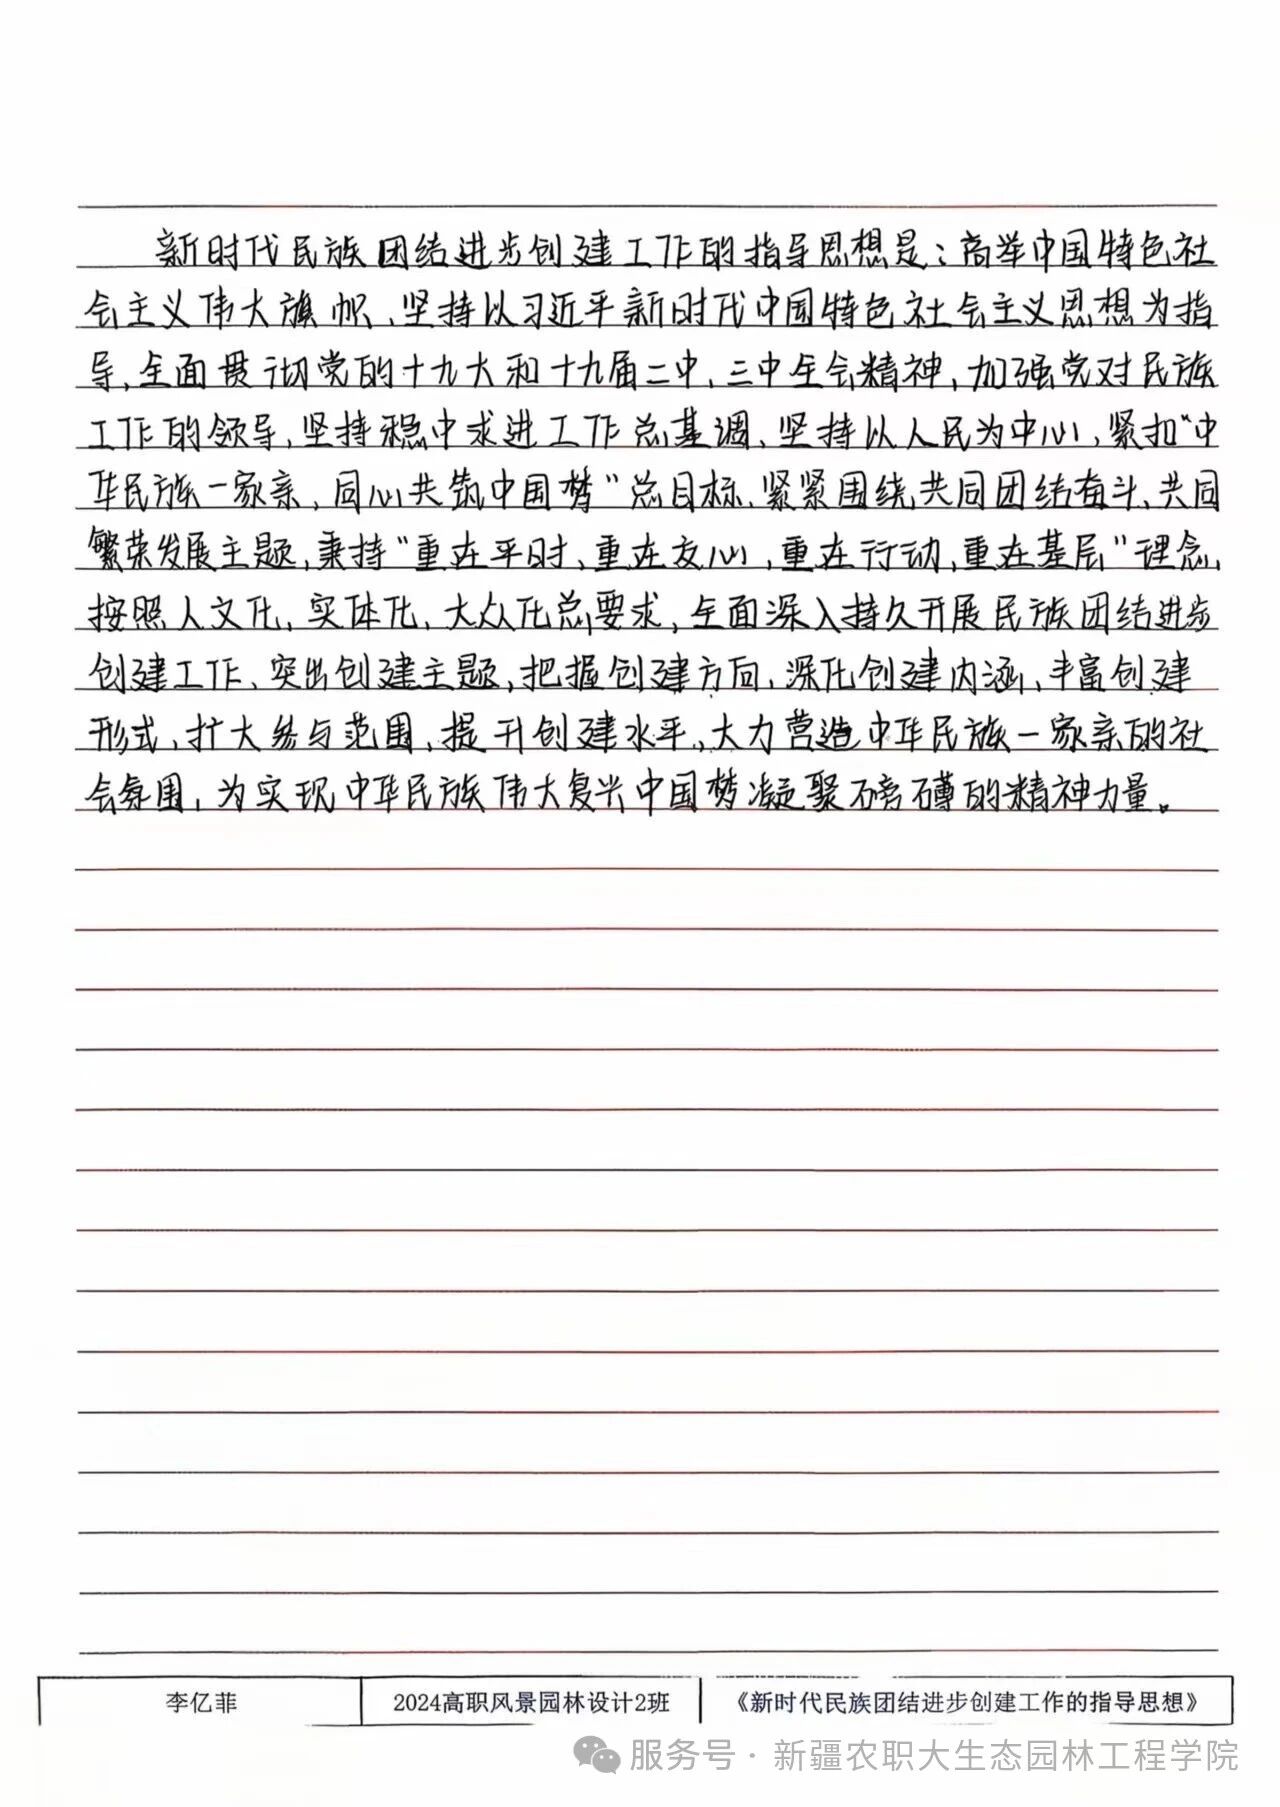 新时代民族团结进步创建工作的指导思想是：高举中国特色社
会主义伟大旗帜、坚持以习近平新时代中国特色社会主义思想为指
导，全面贯彻党的十九大和十九届二中、三中全会精神，加强党对民族
工作的领导，坚持稳中求进工作总基调、坚持以人民为中心，紧扣“中
华民族一家亲，同心共筑中国梦”总目标、紧紧围绕共同团结奋斗、共同
繁荣发展主题，秉持“重在平时，重在交心，重在行动，重在基层”理念，
按照人文化，实体化，大众化总要求，全面深入持久开展民族团结进步
创建工作、突出创建主题，把握创建方向，深化创建内涵，丰富创建
形式，扩大参与范围，提升创建水平，大力营造中华民族一家亲的社
会氛围，为实现中华民族伟大复兴中国梦凝聚磅礴的精神力量。
李亿菲 2024高职风景园林设计2班 《新时代民族团结进步创建工作的指导思想》
服务号·新疆农职大生态园林工程学院